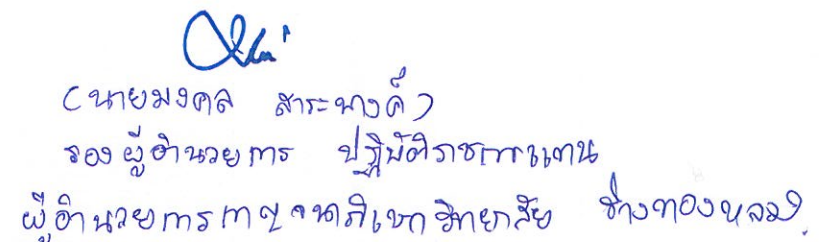 (นายมงคล สาระนางค์)
รองผู้อำนวยการ ปฏิบัติราชการแทน
ผู้อำนวยการกาญจนาภิเษกวิทยาลัย ช่างทองหลวง